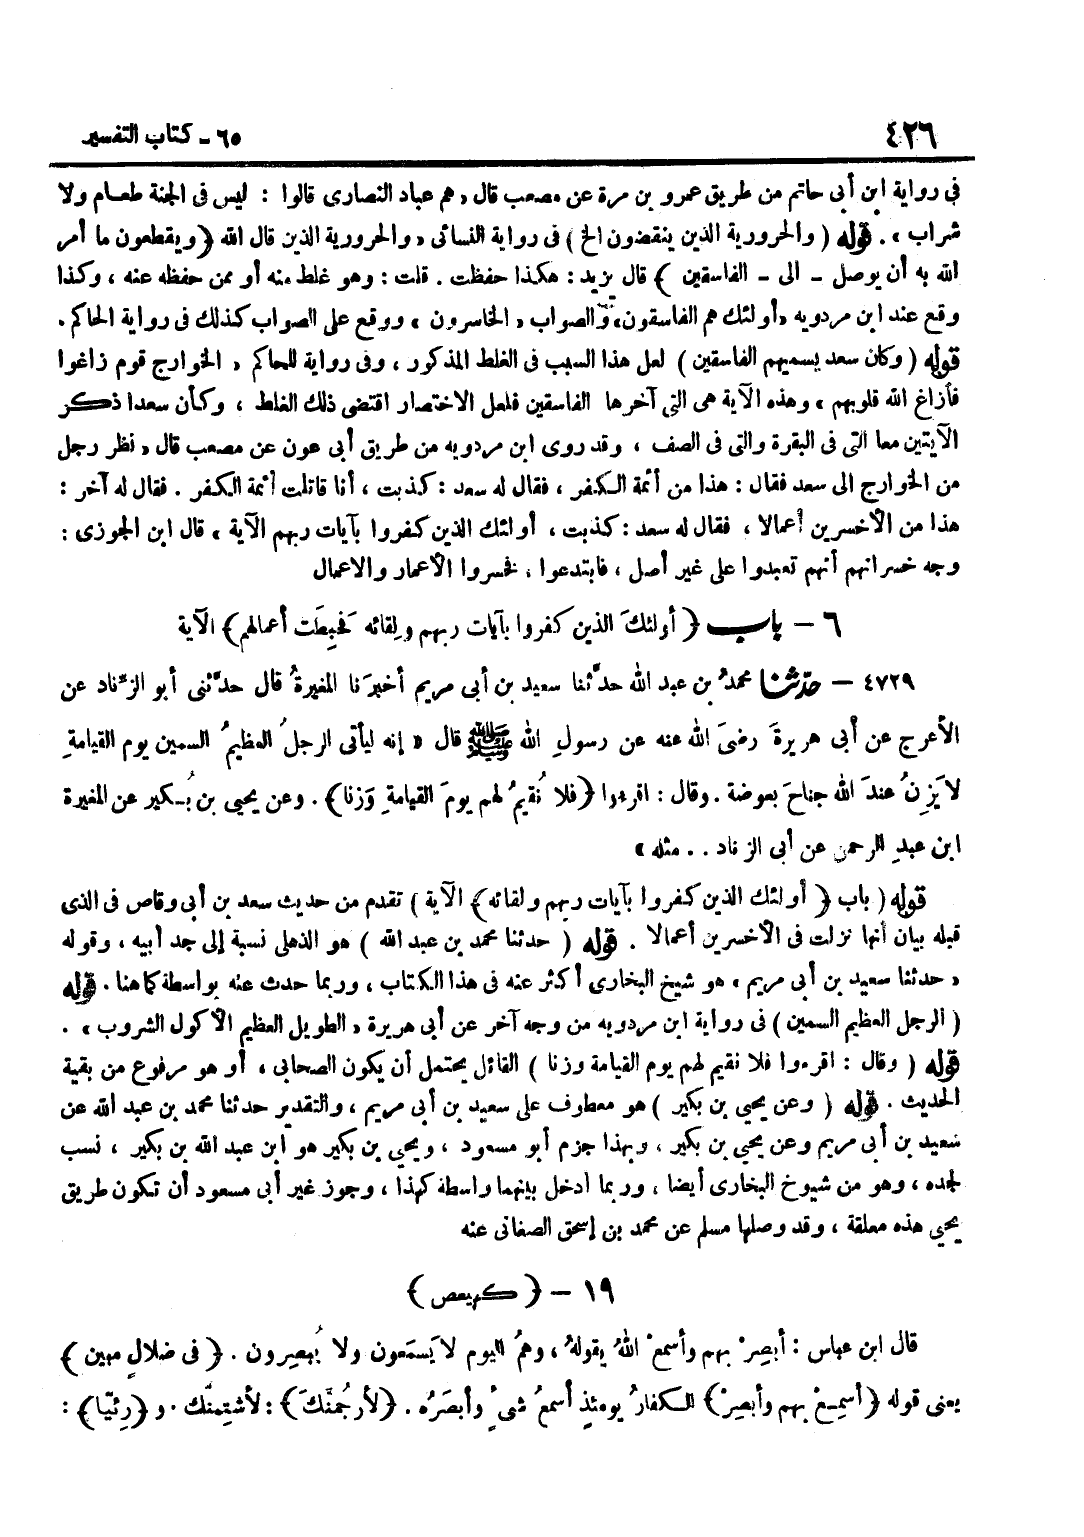 ٤٢٦
٦٥ - كتاب التفسير
فى رواية ابن أبى حاتم من طريق عمرو بن مرة عن مصعب قال «هم عباد النصارى قالوا : ليس فى الجنة طعام ولا
شراب» . قوله ( والحرورية الذين ينقضون الخ ) فى رواية النسائى «والحرورية الذين قال الله ﴿ويقطعون ما أمر
الله به أن يوصل - الى - الفاسقين ﴾ قال يزيد : هكذا حفظت . قلت : وهو غلط منه أو ممن حفظه عنه ، وكذا
وقع عند ابن مردويه «أولئك هم الفاسقون» والصواب «الخاسرون» ووقع على الصواب كذلك فى رواية الحاكم .
قوله ( وكان سعد يسميهم الفاسقين ) لعل هذا السبب فى الغلط المذكور ، وفى رواية للحاكم « الخوارج قوم زاغوا
فأزاغ الله قلوبهم» وهذه الآية هى التى آخرها الفاسقين فلعل الاختصار اقتضى ذلك الغلط ، وكأن سعدا ذكر
الآيتين معا التى فى البقرة والتى فى الصف ، وقد روى ابن مردويه من طريق أبى عون عن مصعب قال «نظر رجل
من الخوارج الى سعد فقال : هذا من أئمة الكفر ، فقال له سعد : كذبت ، أنا قاتلت أئمة الكفر . فقال له آخر :
هذا من الأخسرين أعمالا ، فقال له سعد : كذبت ، أولئك الذين كفروا بآيات ربهم الآية» قال ابن الجوزى :
وجه خسرانهم أنهم تعبدوا على غير أصل ، فابتدعوا ، فخسروا الأعمار والاعمال
٦ - باب ﴿ أولئكَ الذين كفروا بآيات ربهم ولِقائه فحَبِطَت أعمالهم﴾ الآية
٤٧٢٩ - حدّثنا محمدُ بن عبد الله حدَّثنا سعيد بن أبى مريم أخبرَنا المغيرةُ قال حدَّثنى أبو الزِّناد عن
الأعرج عن أبى هريرةَ رضىَ الله عنه عن رسولِ الله ﷺ قال « إنه ليأتى الرجلُ العظيمُ السمين يوم القيامةِ
لا يَزِنُ عندَ الله جناحَ بعوضة . وقال : اقرءوا ﴿فلا نُقيمُ لهم يومَ القيامةِ وَزنا﴾ . وعن يحيى بن بُكير عن المغيرة
ابن عبدِ الرحمن عن أبى الزناد . . مثله»
قوله ( باب ﴿ أولئك الذين كفروا بآيات ربهم ولقائه﴾ الآية ) تقدم من حديث سعد بن أبى وقاص فى الذى
قبله بيان أنها نزلت فى الأخسرين أعمالا . قوله ( حدثنا محمد بن عبد الله ) هو الذهلى نسبة إلى جد أبيه ، وقوله
«حدثنا سعيد بن أبى مريم» هو شيخ البخارى أكثر عنه فى هذا الكتاب ، وربما حدث عنه بواسطة كما هنا . قوله
( الرجل العظيم السمين ) فى رواية ابن مردويه من وجه آخر عن أبى هريرة «الطويل العظيم الأكول الشروب» .
قوله ( وقال : اقرءوا فلا نقيم لهم يوم القيامة وزنا ) القائل يحتمل أن يكون الصحابى ، أو هو مرفوع من بقية
الحديث . قوله ( وعن يحيى بن بكير ) هو معطوف على سعيد بن أبى مريم ، والتقدير حدثنا محمد بن عبد الله عن
سعيد بن أبى مريم وعن يحيى بن بكير ، وبهذا جزم أبو مسعود ، ويحيى بن بكير هو ابن عبد الله بن بكير ، نسب
لجده ، وهو من شيوخ البخارى أيضا ، وربما ادخل بينهما واسطة كهذا ، وجوز غير أبى مسعود أن تكون طريق
يحيى هذه معلقة ، وقد وصلها مسلم عن محمد بن إسحق الصغانى عنه
١٩ - ﴿ كهيعص ﴾
قال ابن عباس : أبصِرْ بهم وأسمعْ اللهُ يقولهُ ، وهمُ اليوم لا يَسمَعون ولا يُبصِرون . ﴿ فى ضلالٍ مبين ﴾
يعنى قوله ﴿أسمِعْ بهم وأبصِرْ﴾ الكفارُ يومئذٍ أسمعُ شىءٍ وأبصَرُه . ﴿لأرجُمنَّكَ﴾ : لأشتِمنَّك . و﴿رِئيًا﴾ :